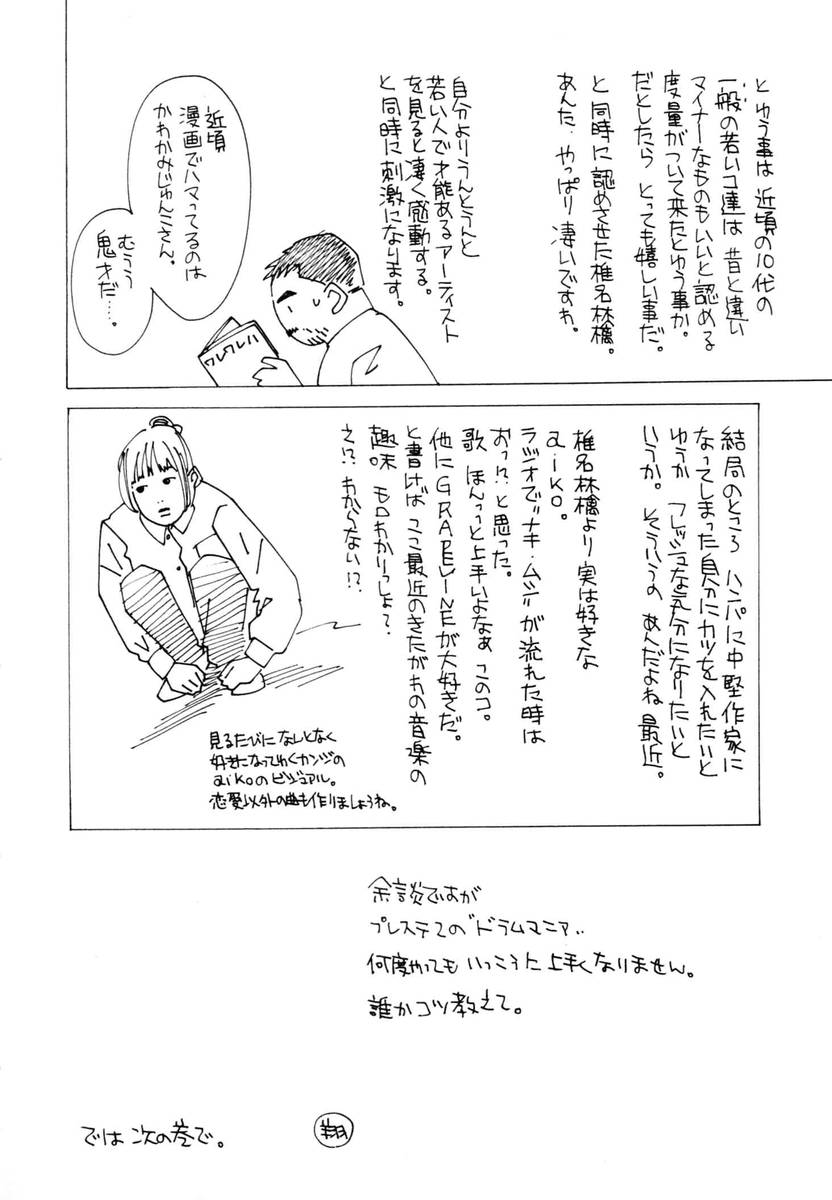 とゆう事は 近頃の10代の
一般の若いコ達は 昔と違い
マイナーなものもいいと認める
度量がついて来たとゆう事か。
だとしたら とっても嬉しい事だ。
と同時に認めさせた椎名林檎。
あんた、やっぱり凄いですわ。
自分よりうんとうんと
若い人で才能あるアーティスト
を見ると凄く感動する。
と同時に刺激になります。
近頃
漫画でハマってるのは
かわかみじゅんこさん。
むうう
鬼才だ……。
ワレワレハ
結局のところ ハンパに中堅作家に
なってしまった自分にカツを入れたいと
ゆうか フレッシュな気分になりたいと
いうか。そういうの あんだよね 最近。
椎名林檎より 実は好きな
aiko。
ラジオで〝ナキ・ムシ〟が流れた時は
おっ!?と思った。
歌 ほんっっと上手いよなぁ このコ。
他にGRAPEVINEが大好きだ。
と書けば ここ最近のきたがわの音楽の
趣味 モロわかりっしょ?
え!?わからない!?
見るたびに なんとなく
好きになってゆくカンジの
aikoのビジュアル。
恋愛以外の曲も作りましょうね。
余談ですが
プレステ2の〝ドラムマニア〟
何度やっても いっこうに上手くなりません。
誰かコツ教えて。
では 次の巻で。
翔